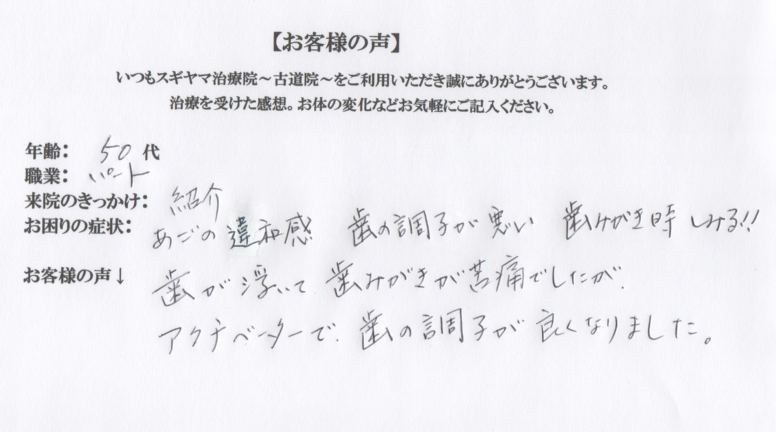 【お客様の声】
いつもスギヤマ治療院～古道院～をご利用いただき誠にありがとうございます。
治療を受けた感想。お体の変化などお気軽にご記入ください。
年齢： 50 代
職業： パート
来院のきっかけ： 紹介
お困りの症状： あごの違和感 歯の調子が悪い 歯みがき時しみる!!
お客様の声↓ 歯が浮いて歯みがきが苦痛でしたが、
アクチベーターで、歯の調子が良くなりました。